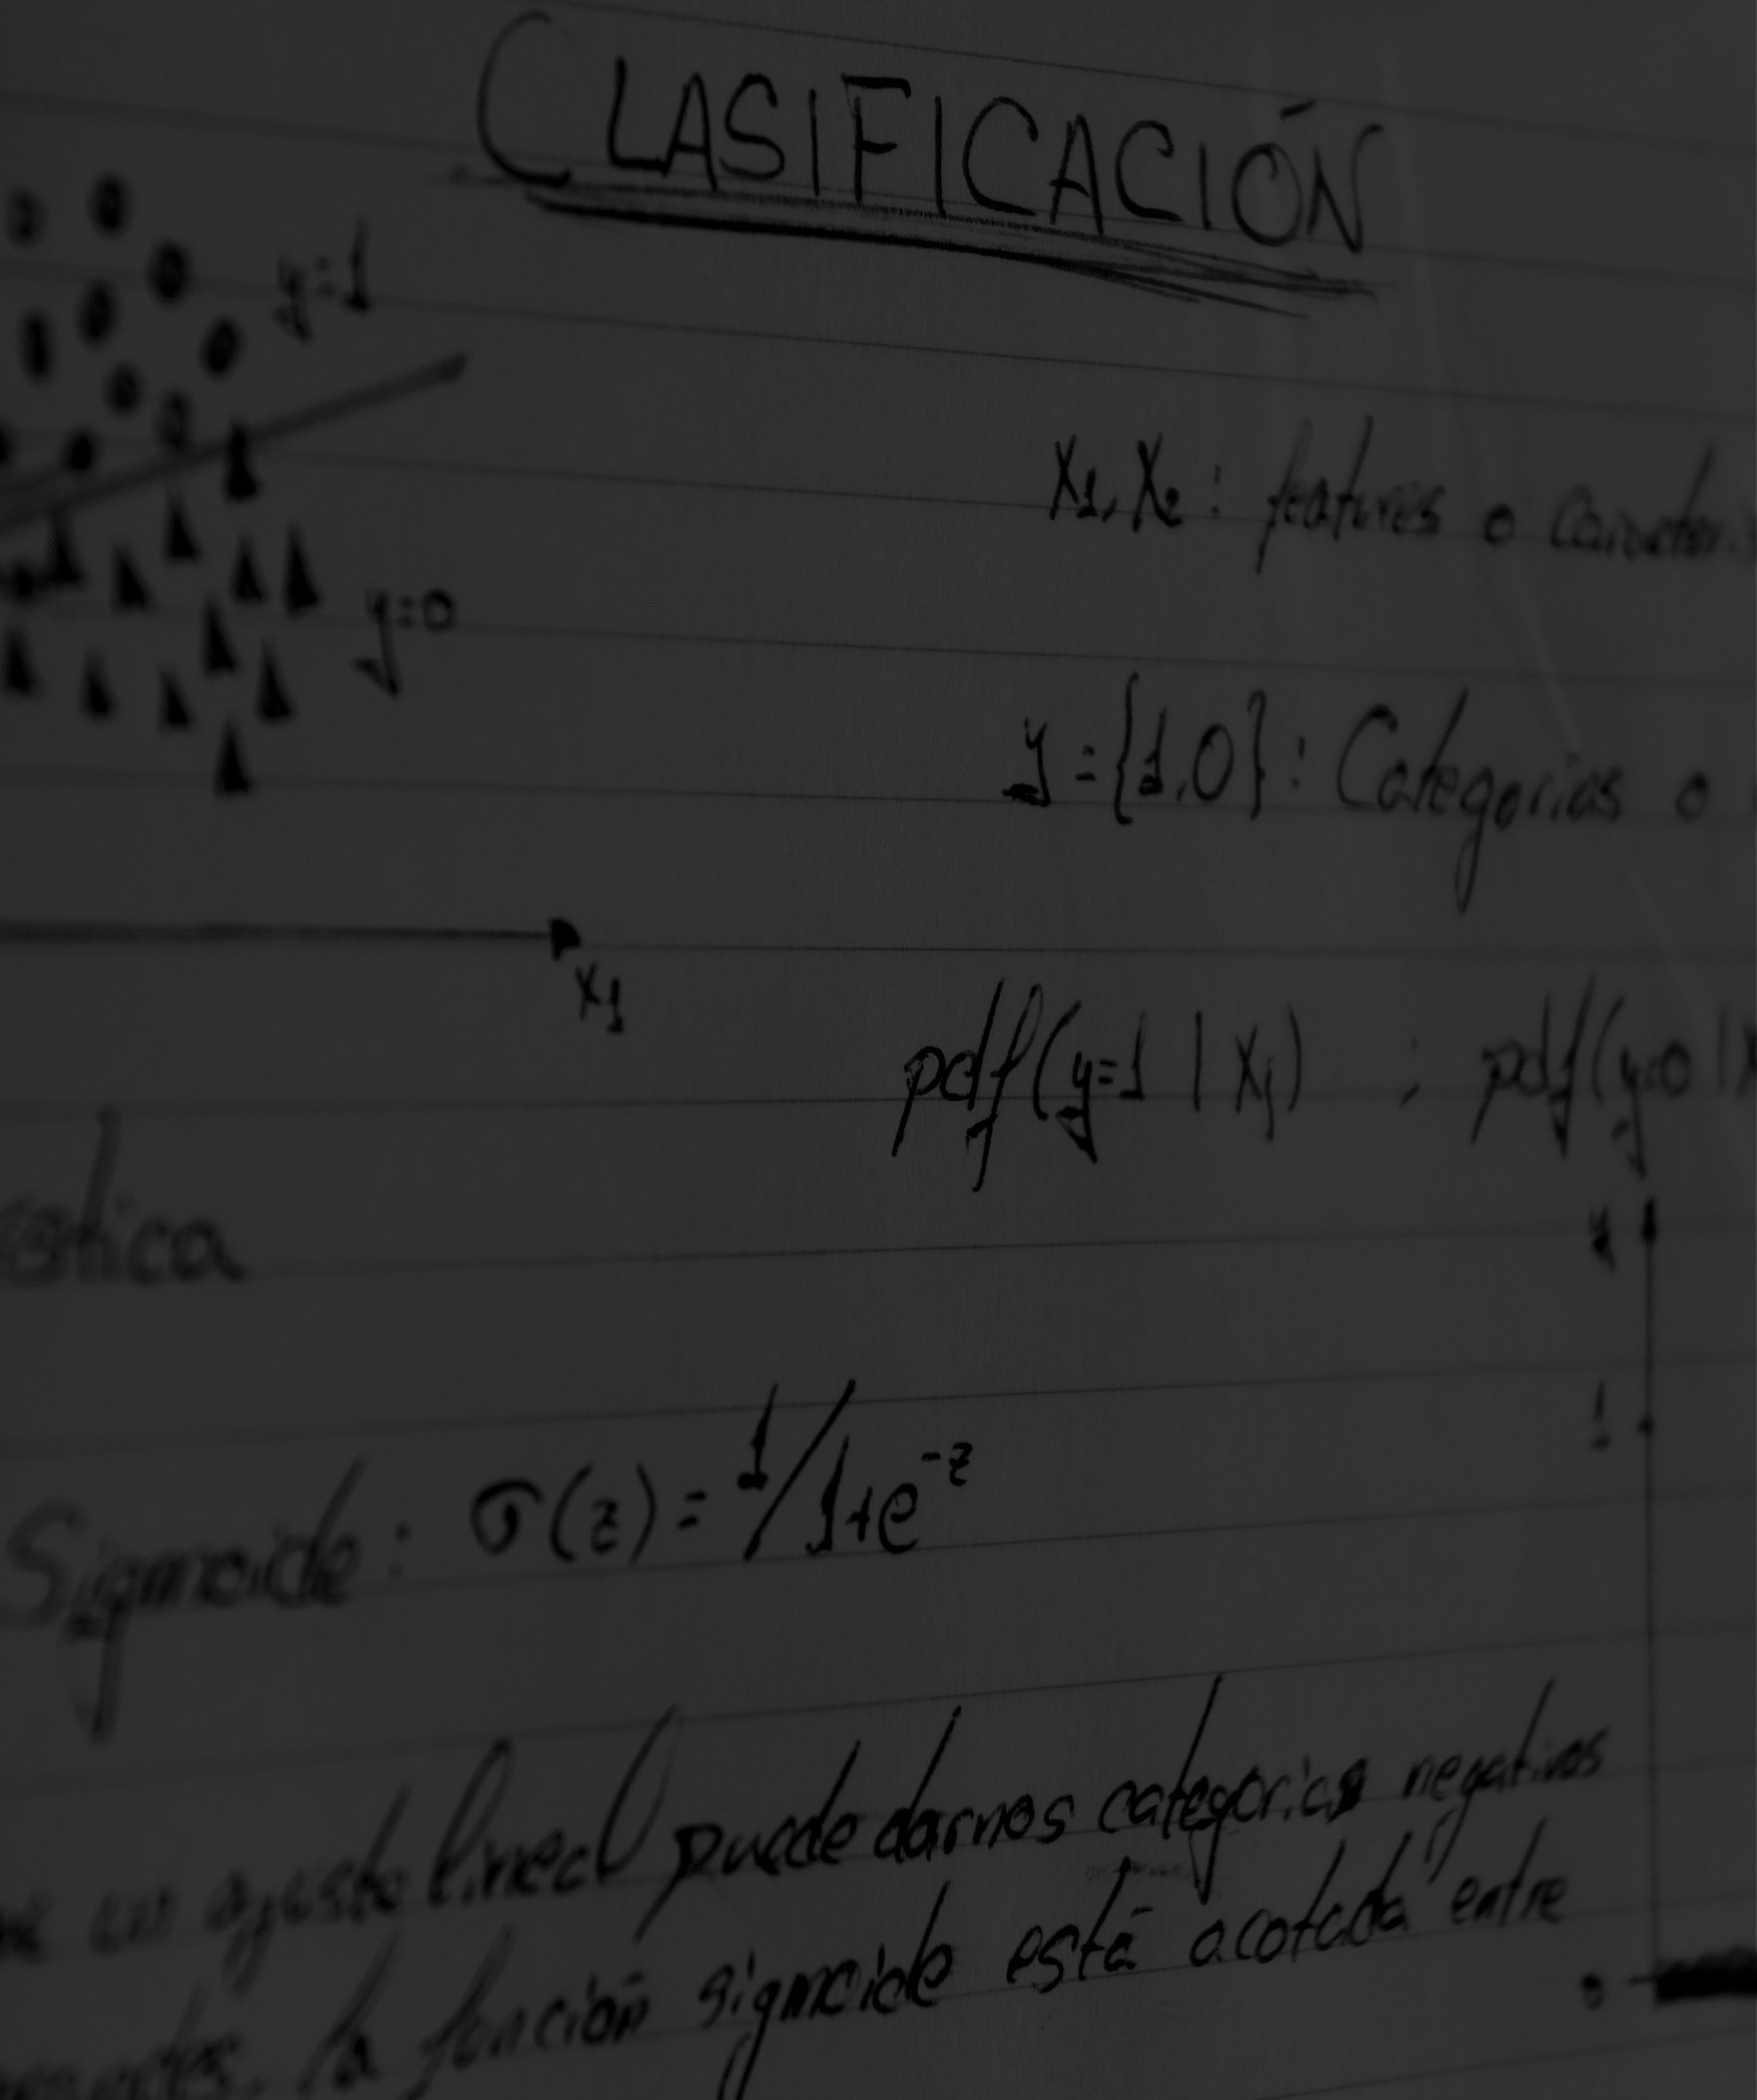 CLASIFICACIÓN
y=1
X1, X2 : features o
y=0
y = {1,0} : Categorias o
X1
pdf(y=1 | Xj) ; pdf(y=0 | X
y
1
Sigmoide : σ(z) = 1/1+e^-z
un ajuste lineal puede darnos categorias negativas
la función sigmoide está acotada entre
0